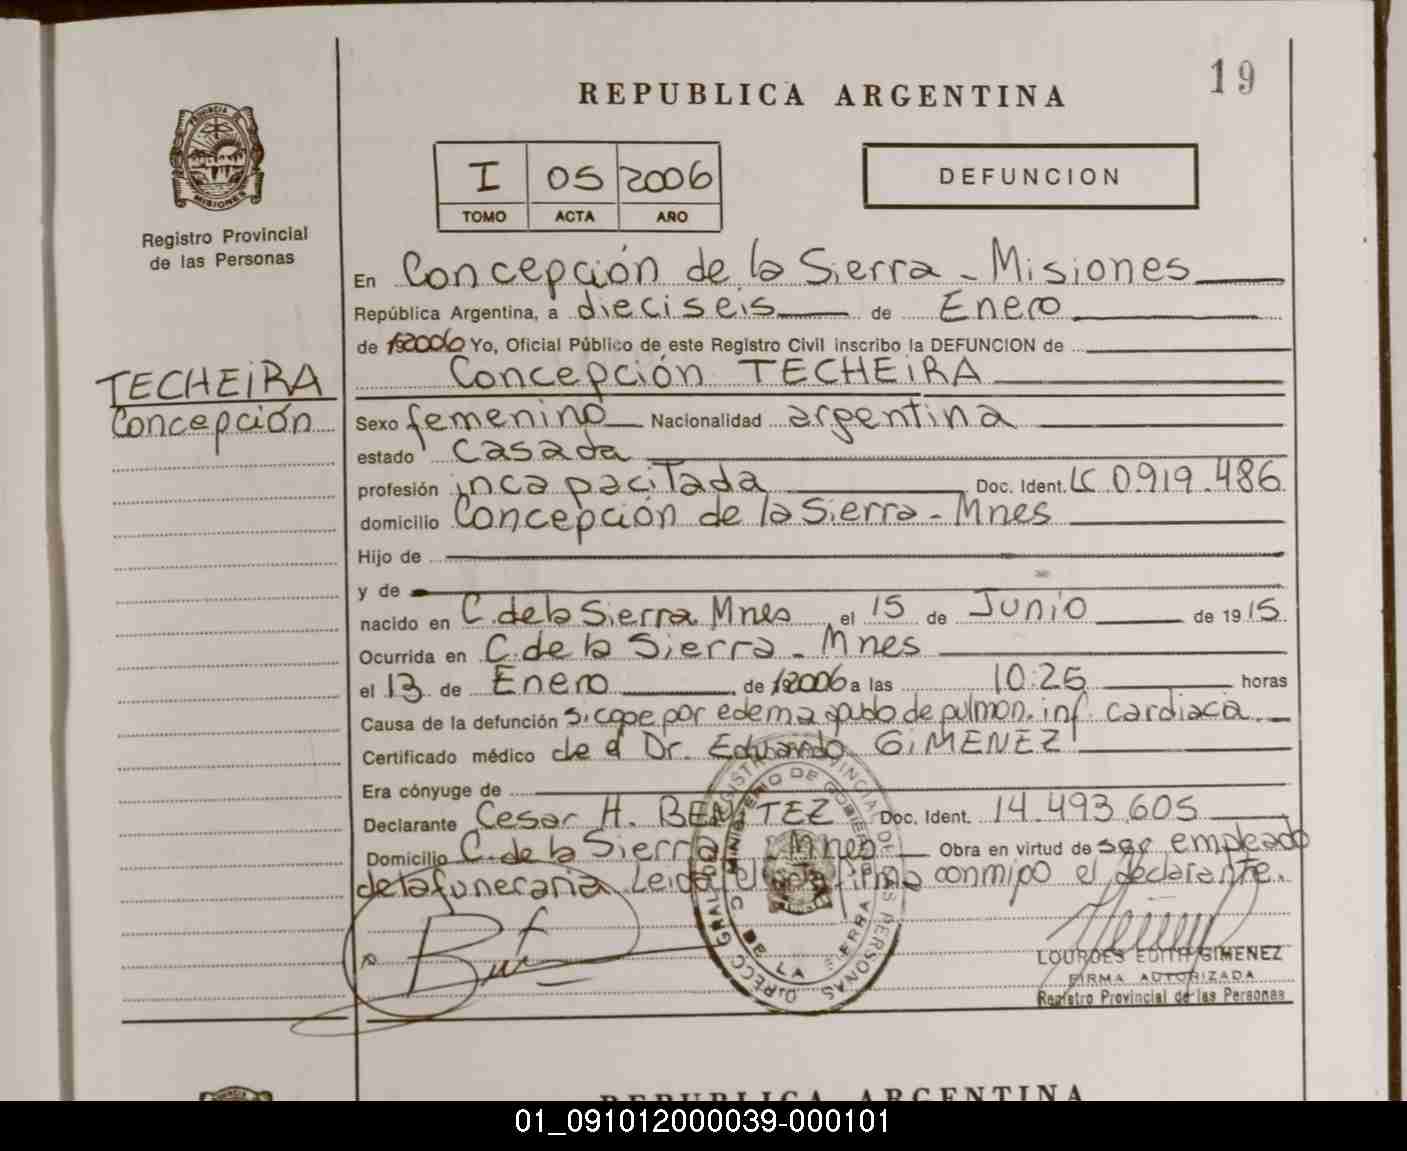 19
REPUBLICA ARGENTINA
I 05 2006
TOMO ACTA AÑO
DEFUNCION
PROVINCIA DE MISIONES
Registro Provincial
de las Personas
TECHEIRA
Concepción
En Concepción de la Sierra - Misiones
República Argentina, a dieciseis de Enero
de 2006 Yo, Oficial Público de este Registro Civil inscribo la DEFUNCION de
Concepción TECHEIRA
Sexo femenino Nacionalidad argentina
estado casada
profesión incapacitada Doc. Ident. LC 0.919.486
domicilio Concepción de la Sierra - Mnes
Hijo de
y de
nacido en C. de la Sierra Mnes el 15 de Junio de 1915
Ocurrida en C. de la Sierra - Mnes
el 13 de Enero de 2006 a las 10:25 horas
Causa de la defunción sicope por edema agudo de pulmon. inf. cardiaca
Certificado médico de el Dr. Eduardo GIMENEZ
Era cónyuge de
Declarante Cesar H. BENITEZ Doc. Ident. 14.493.605
Domicilio C. de la Sierra Mnes Obra en virtud de ser empleado
de la funeraria. Leida el acta firma conmigo el declarante.
LOURDES EDITH GIMENEZ
FIRMA AUTORIZADA
Registro Provincial de las Personas
REPUBLICA ARGENTINA
01_091012000039-000101